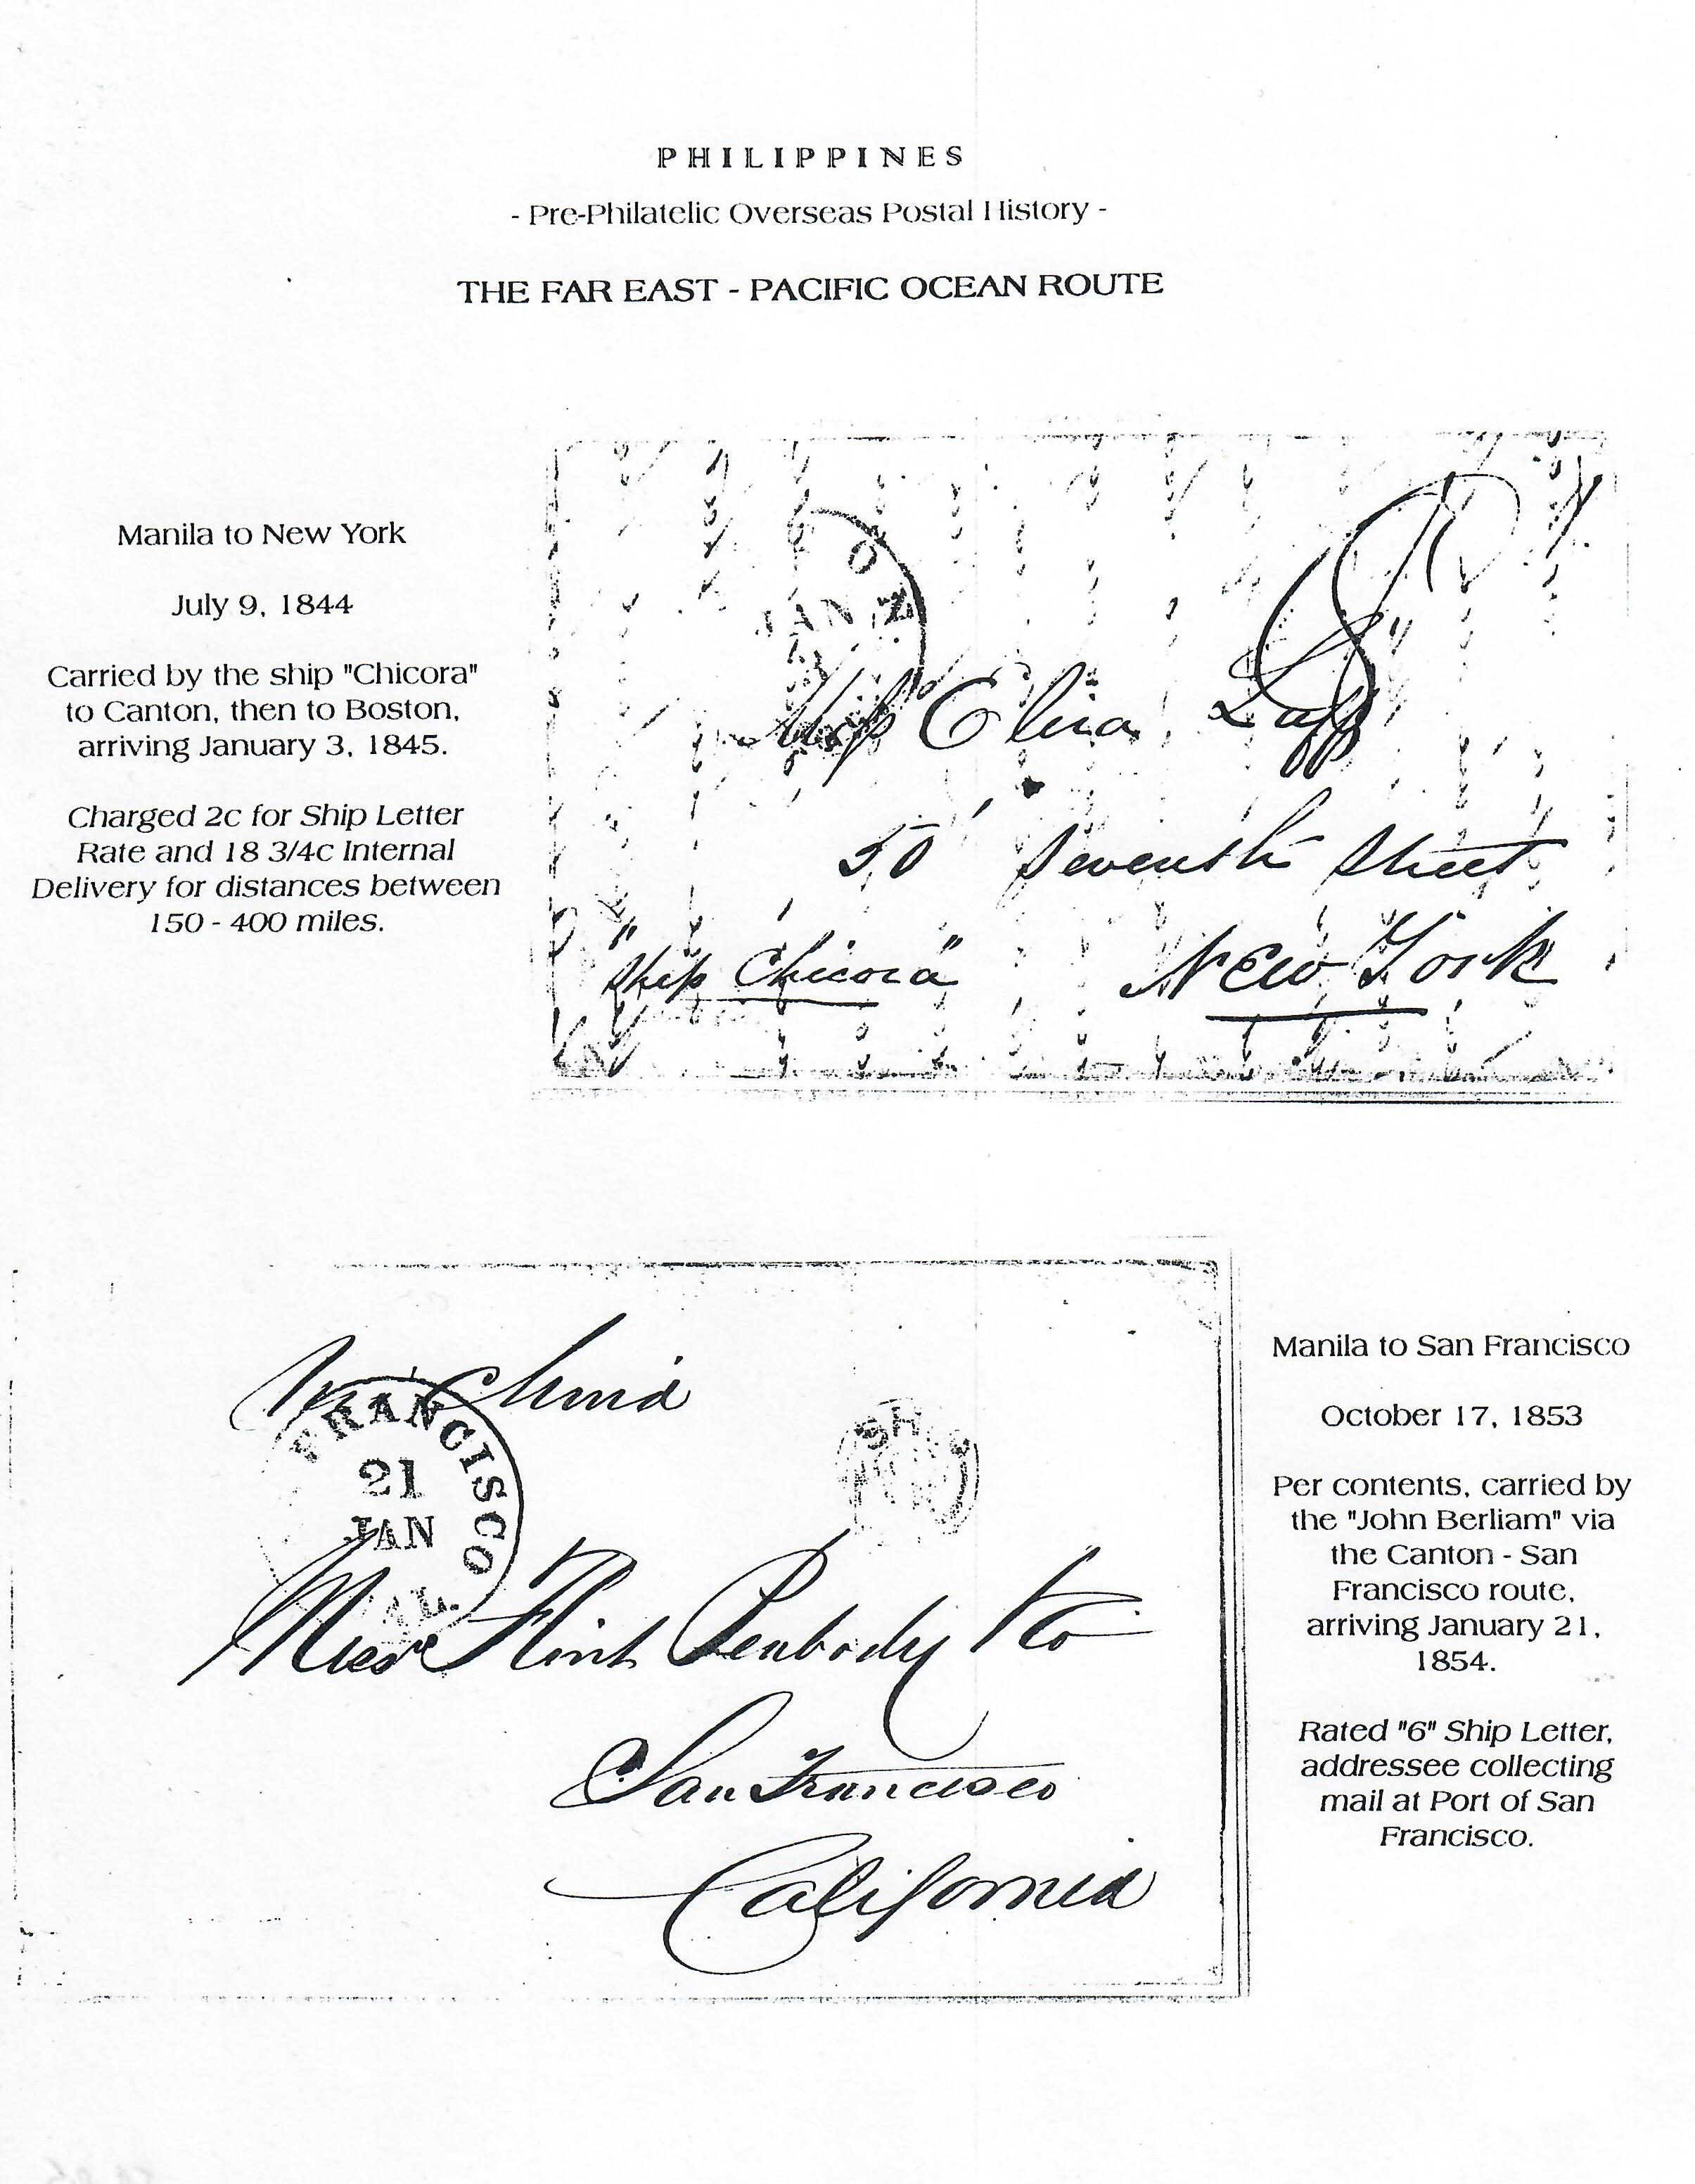 PHILIPPINES
- Pre-Philatelic Overseas Postal History -
THE FAR EAST - PACIFIC OCEAN ROUTE
Manila to New York
July 9, 1844
Carried by the ship "Chicora"
to Canton, then to Boston,
arriving January 3, 1845.
Charged 2c for Ship Letter
Rate and 18 3/4c Internal
Delivery for distances between
150 - 400 miles.
JAN
Eliza
50 Seventh Street
"Ship Chicora"
New York
China
FRANCISCO
21
JAN
CAL.
SHIP
Flint Peabody & Co
San Francisco
California
Manila to San Francisco
October 17, 1853
Per contents, carried by
the "John Berliam" via
the Canton - San
Francisco route,
arriving January 21,
1854.
Rated "6" Ship Letter,
addressee collecting
mail at Port of San
Francisco.